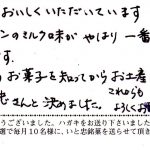 おいしくいただいています
ンのミルク味が やはり一番
す。
お菓子を知ってからお土産
さんと決めました。これからも
よろしくお願
うございました。ハガキをお送り下さいました
選で毎月10名様に、いと忠銘菓を送らせて頂き